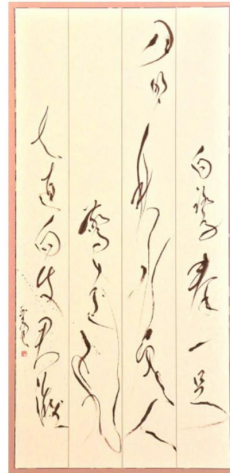 白鷺拳一足
月明秋水寒人
驚遠飛
去直向使君灘